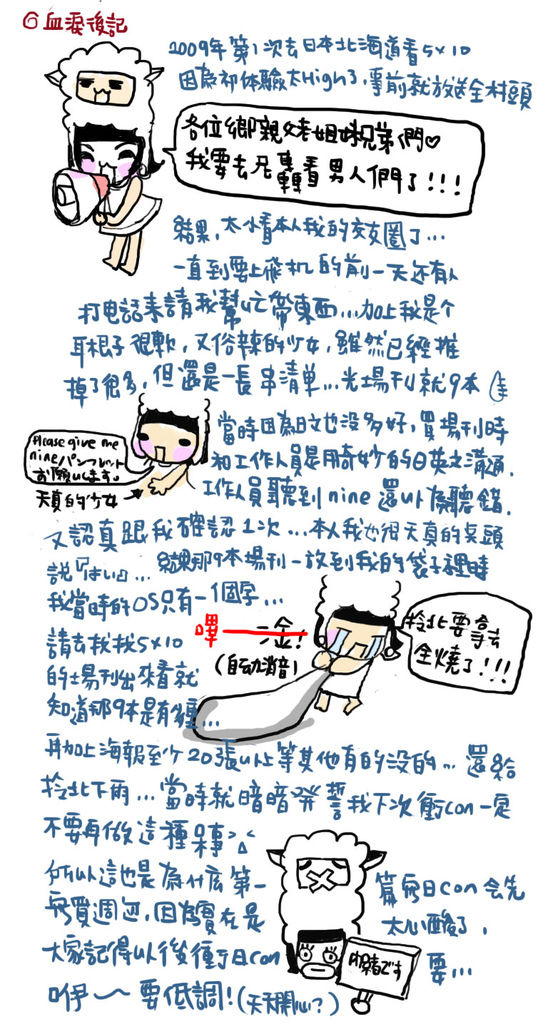 ◎血淚後記
2009年第1次去日本北海道看5x10
因為初体驗太High了,事前就放送全村頭
各位鄉親父老姐妹兄弟們♡
我要去兄專看男人們了!!!
結果,太小看本人我的交友圈了...
一直到要上飛机的前一天还有人
打电話來請我幫忙帶東西...加上我是个
耳根子很軟,又俗辣的少女,雖然已經推
掉了很多,但還是一長串清单...光場刊就9本
Please give me
nineパンフレット
お願いします。
天真的少女
當時因為日文也没多好,買場刊時
和工作人員是用奇妙的日英文溝通.
工作人員聽到nine還以為聽錯.
又認真跟我確認1次...本人我也很天真的点頭
說『はい』... 結果那9本場刊一放到我的袋子裡時
我當時的OS只有一個字...
嗶
(自动消音)
拎北要拿去
全燒了!!!
請去找找5x10
的場刊出來看就
知道那9本是有多重...
再加上海報至少20張以上等其他有的没的...還給
拎北下雨...當時就暗暗發誓我下次衝con一定
不要再做這種呆事
所以這也是為什么第一篇衝日con会先
先買週边,因為實在是太心酸了,
大家記得以後衝日con要...
內緒です
咿~要低調!(天天開心?)